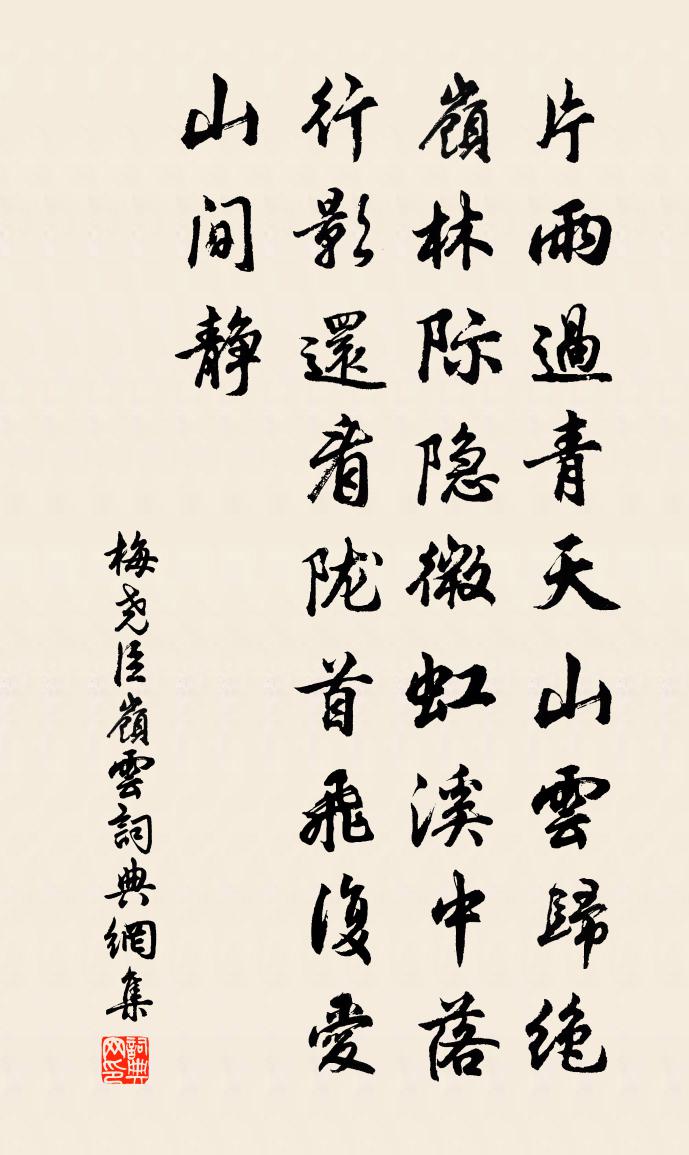 片雨過青天山雲歸絶
嶺林际隐微虹溪中落
行影還看陇首飛復愛
山間靜
梅尧臣嶺雲詞典網集
詞典
网印